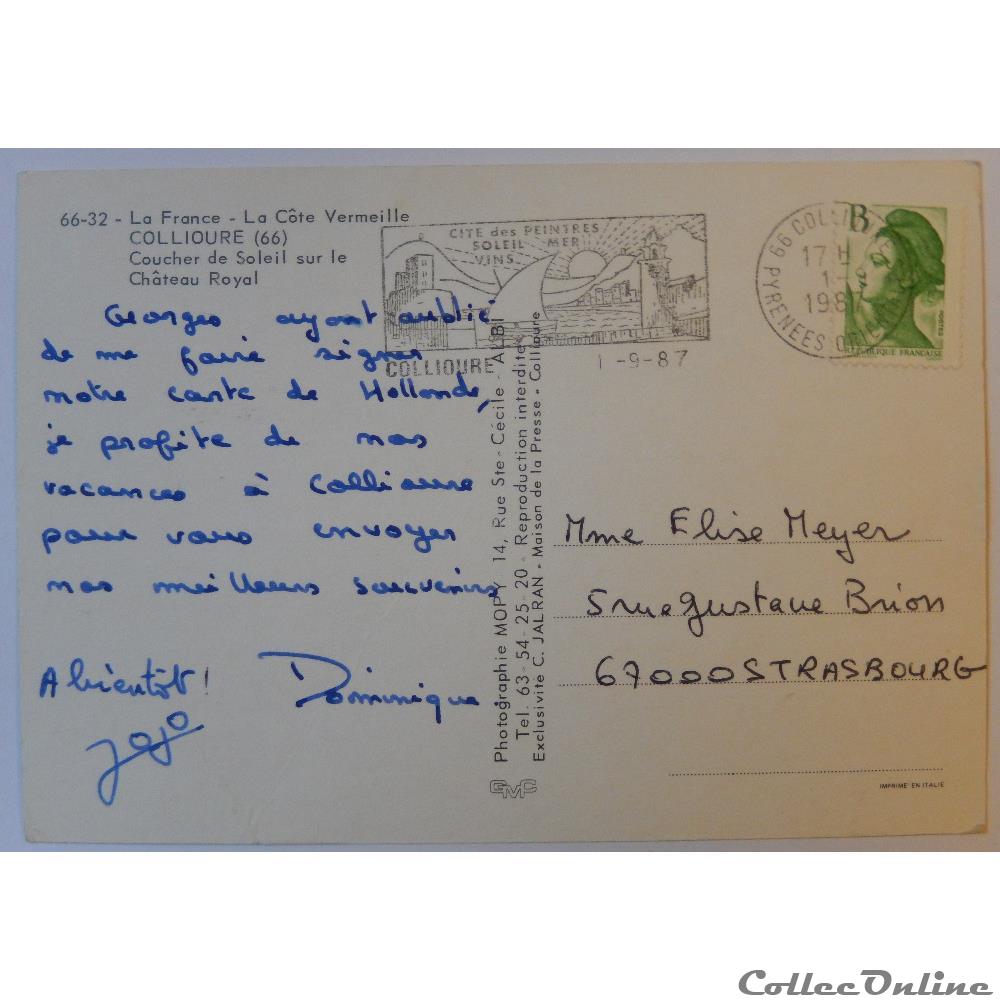 66-32 - La France - La Côte Vermeille
COLLIOURE (66)
Coucher de Soleil sur le
Château Royal
Georges ayant oublié
de me faire signer
notre carte de Hollande,
je profite de nos
vacances à Collioure
pour vous envoyer
nos meilleurs souvenirs
A bientôt! Dominique
Jojo
CITE des PEINTRES
SOLEIL MER
VINS
COLLIOURE
1-9-87
66 COLLIOURE
17 H
1-
1987
PYRENEES ORIENT
B
REPUBLIQUE FRANCAISE
Photographie MOPY 14, Rue Ste-Cécile - ALBI
Tel. 63-54-25-20 - Reproduction interdite
Exclusivité C. JALRAN - Maison de la Presse - Collioure
Mme Elise Meyer
5 rue Gustave Brion
67000 STRASBOURG
IMPRIMÉ EN ITALIE
CollecOnline